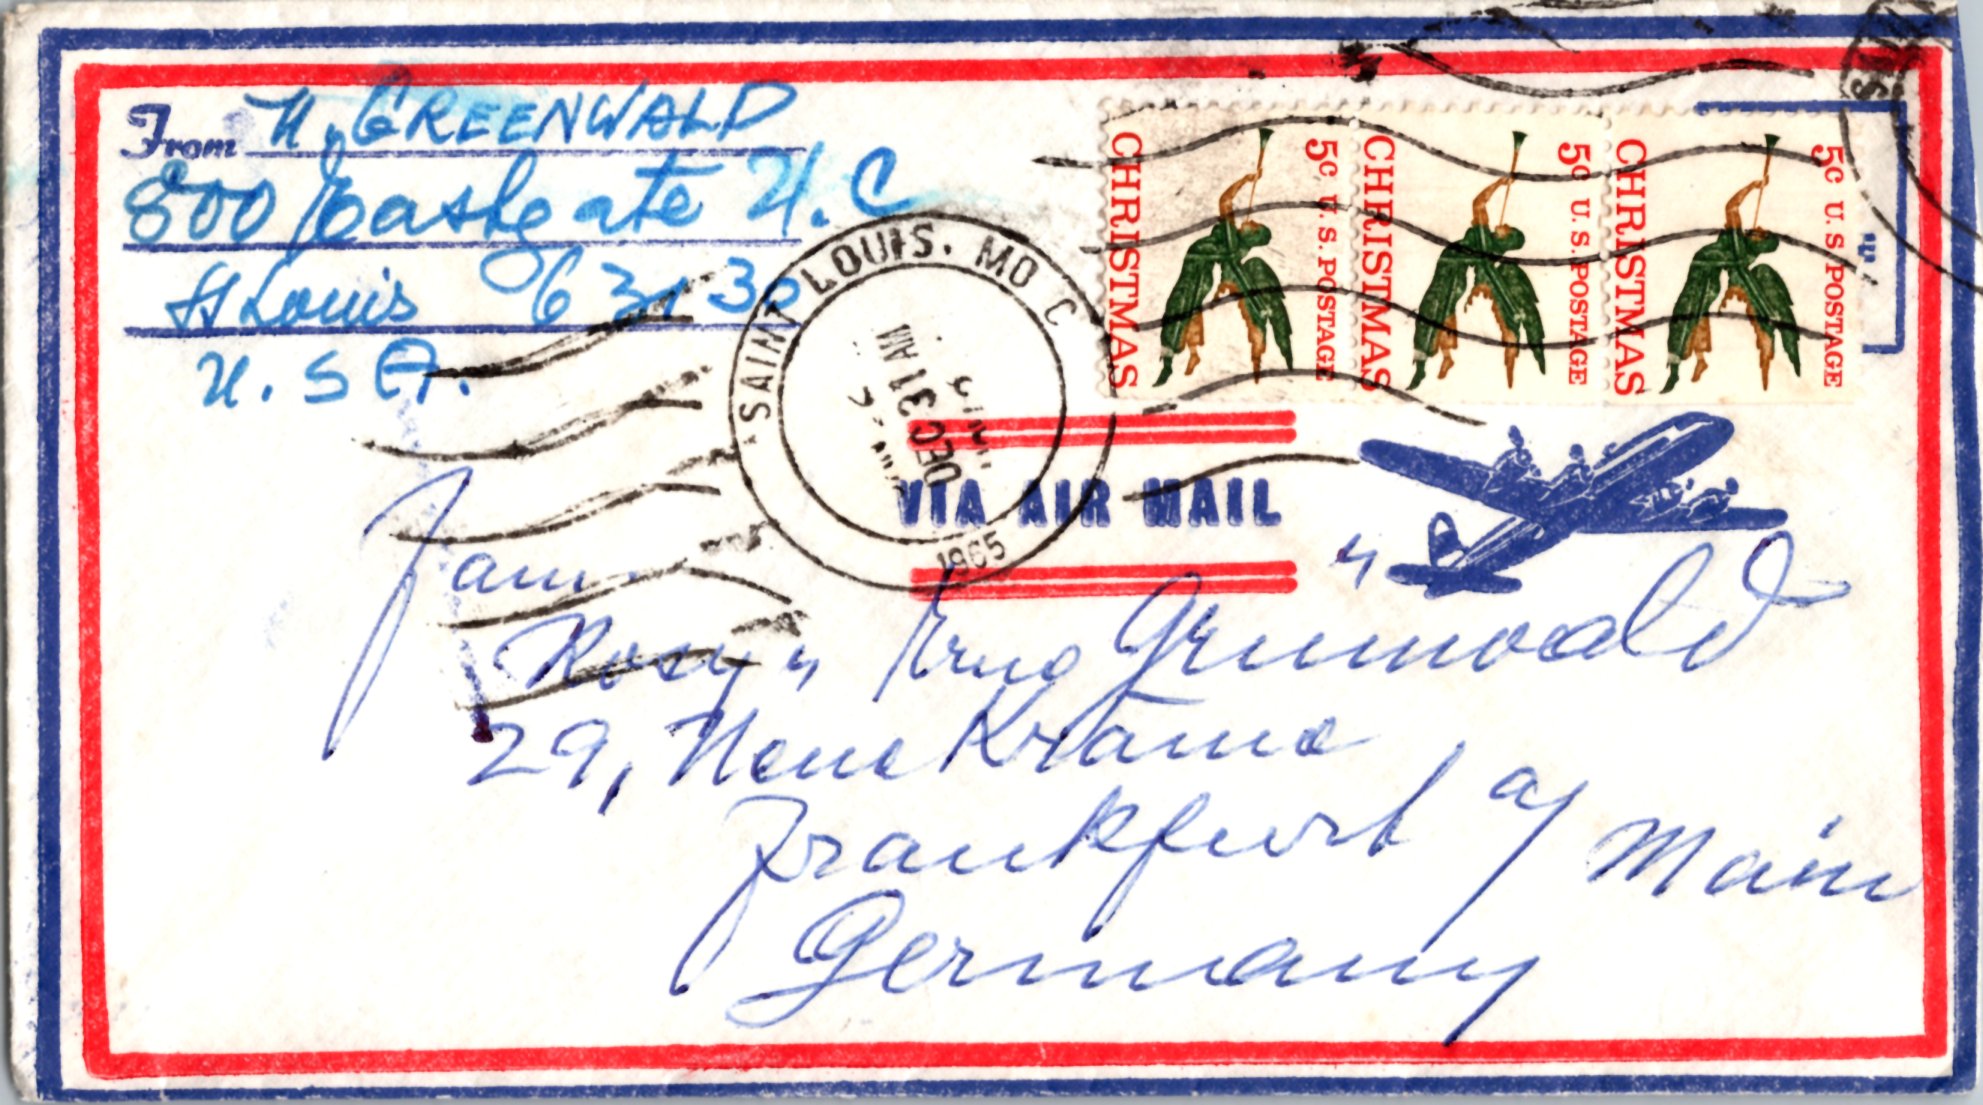 From H. GREENWALD
800 Eastgate U.C
St Louis 63130
U.S A.
CHRISTMAS 5c U.S. POSTAGE
CHRISTMAS 5c U.S. POSTAGE
CHRISTMAS 5c U.S. POSTAGE
SAINT LOUIS. MO C
AM
DEC 31
1965
VIA AIR MAIL
Fam.
Rosy u Erno Grünwald
29, Neue Kräme
Frankfurt a/ Main
Germany